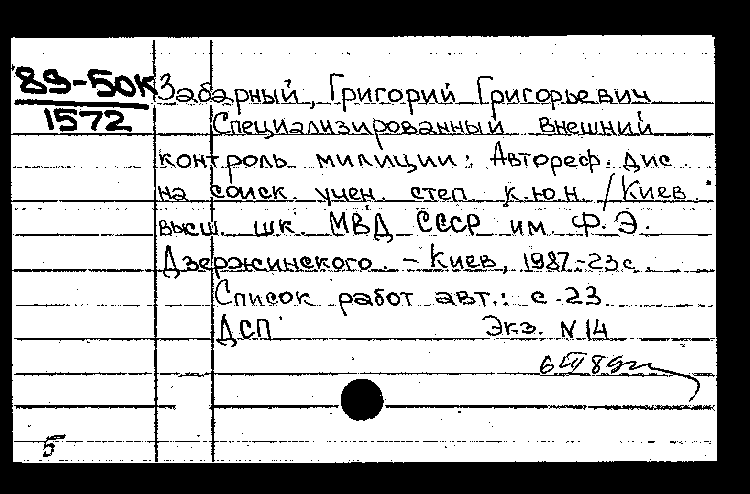 89-50К
1572
Забарный, Григорий Григорьевич
Специализированный внешний
контроль милиции: Автореф. дис
на соиск. учен. степ к.ю.н. / Киев.
высш. шк. МВД СССР им. Ф.Э.
Дзержинского. - Киев, 1987.-23с.
Список работ авт.: с.23
ДСП Экз. N 14
5